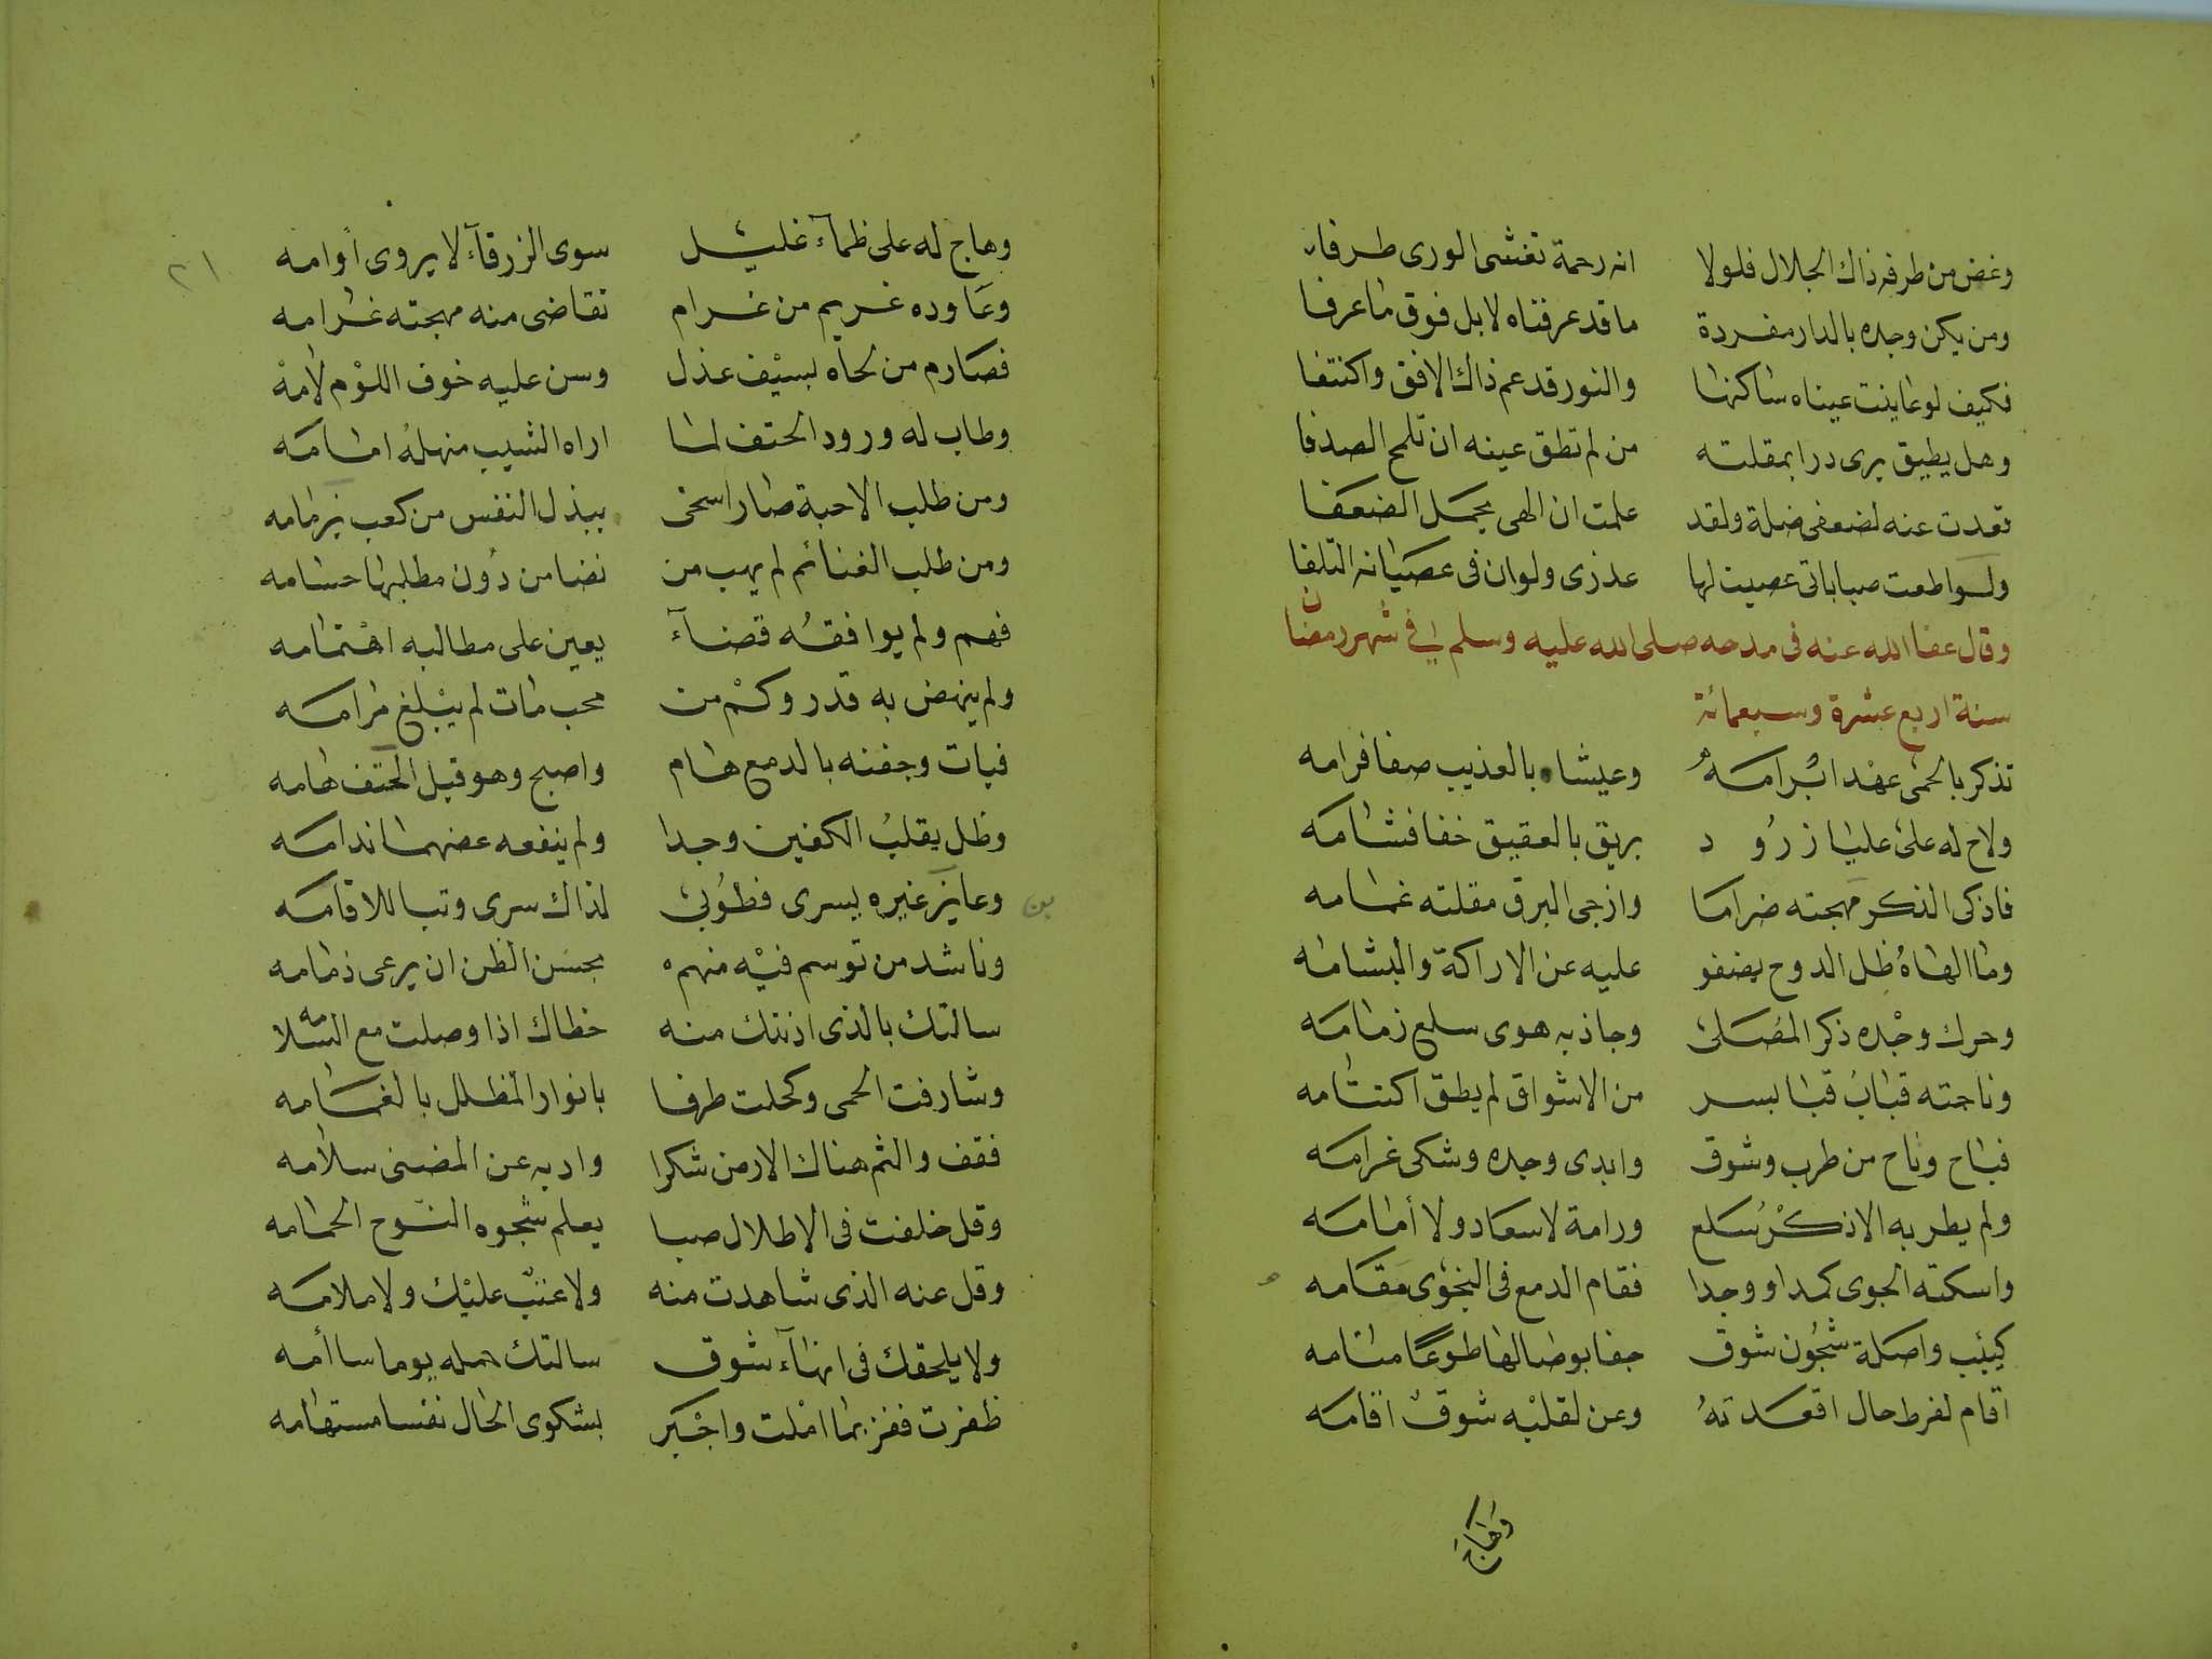 وغض من طرفه ذاك الجلال فلولا انه رحمة تغشى الورى طرفا
ومن يكن وجده بالدار مفردة ما قد عرفناه لا بل فوق ما عرفا
فكيف لو عاينت عيناه ساكنها والنور قد عم ذاك الافق واكتنفا
وهل يطيق يرى درا بمقلته من لم تطق عينه ان تلمح الصدفا
قعدت عنه لضعفى ضلة ولقد علمت ان الهى يحمل الضعفا
ولو اطعت صباباتى عصيت لها عذرى ولو ان فى عصيانه التلفا
وقال عفا الله عنه فى مدحه صلى الله عليه وسلم في شهر رمضان
سنة اربع عشرة وسبعمائة
تذكر بالحمى عهدا برامه وعيشا بالعذيب صفا فرامه
ولاح له على عليا زرود بريق بالعقيق خفا فشامه
فاذكى الذكر مهجته ضراما وازجى البرق مقلته غمامه
وما الهاه ظل الدوح يضفو عليه عن الاراكة والبشامه
وحرك وجده ذكر المصلى وجاذبه هوى سلع زمامه
وناجته قباب قبا بسر من الاشواق لم يطق اكتتامه
فباح وناح من طرب وشوق وابدى وجده وشكى غرامه
ولم يطربه الا ذكر سلع ورامة لا سعاد ولا أمامه
واسكته الجوى كمدا ووجدا فقام الدمع فى النجوى مقامه
كئيب واصلة شجون شوق جفا بوصالها طوعا منامه
اقام لفرط حال اقعدته وعن لقلبه شوق اقامه
وهاج
٢١
وهاج له على ظمآء غليل سوى الزرقآء لا يروى أوامه
وعاوده غريم من غرام تقاضى منه مهجته غرامه
فصارم من لحاه بسيف عذل وسن عليه خوف اللوم لامه
وطاب له ورود الحتف لما اراه الشيب منهله امامه
ومن طلب الاحبة صار اسخى ببذل النفس من كعب بن مامه
ومن طلب الغنائم لم يهب من نضا من دون مطلبها حسامه
فهم ولم يوافقه قضآء يعين على مطالبه اهتمامه
ولم ينهض به قدر وكم من محب مات لم يبلغ مرامه
فبات وجفنه بالدمع هام واصبح وهو قبل الحتف هامه
وظل يقلب الكفين وجدا ولم ينفعه عضهما ندامه
وعاين غيره يسرى فطوبى لذاك سرى وتبا للاقامه
وناشد من توسم فيه منهم بحسن الظن ان يرعى ذمامه
سالتك بالذى اذنتك منه خطاك اذا وصلت مع السلامه
وشارفت الحمى وكحلت طرفا بانوار المظلل بالغمامه
فقف والثم هناك الارض شكرا واد به عن المضنى سلامه
وقل خلفت فى الاطلال صبا يعلم شجوه النوح الحمامه
وقل عنه الذى شاهدت منه ولا عتب عليك ولا ملامه
ولا يلحقك فى انهآء شوق سالتك حمله يوما سأمه
ظفرت ففز بما املت واجبر بشكوى الحال نفسا مستهامه